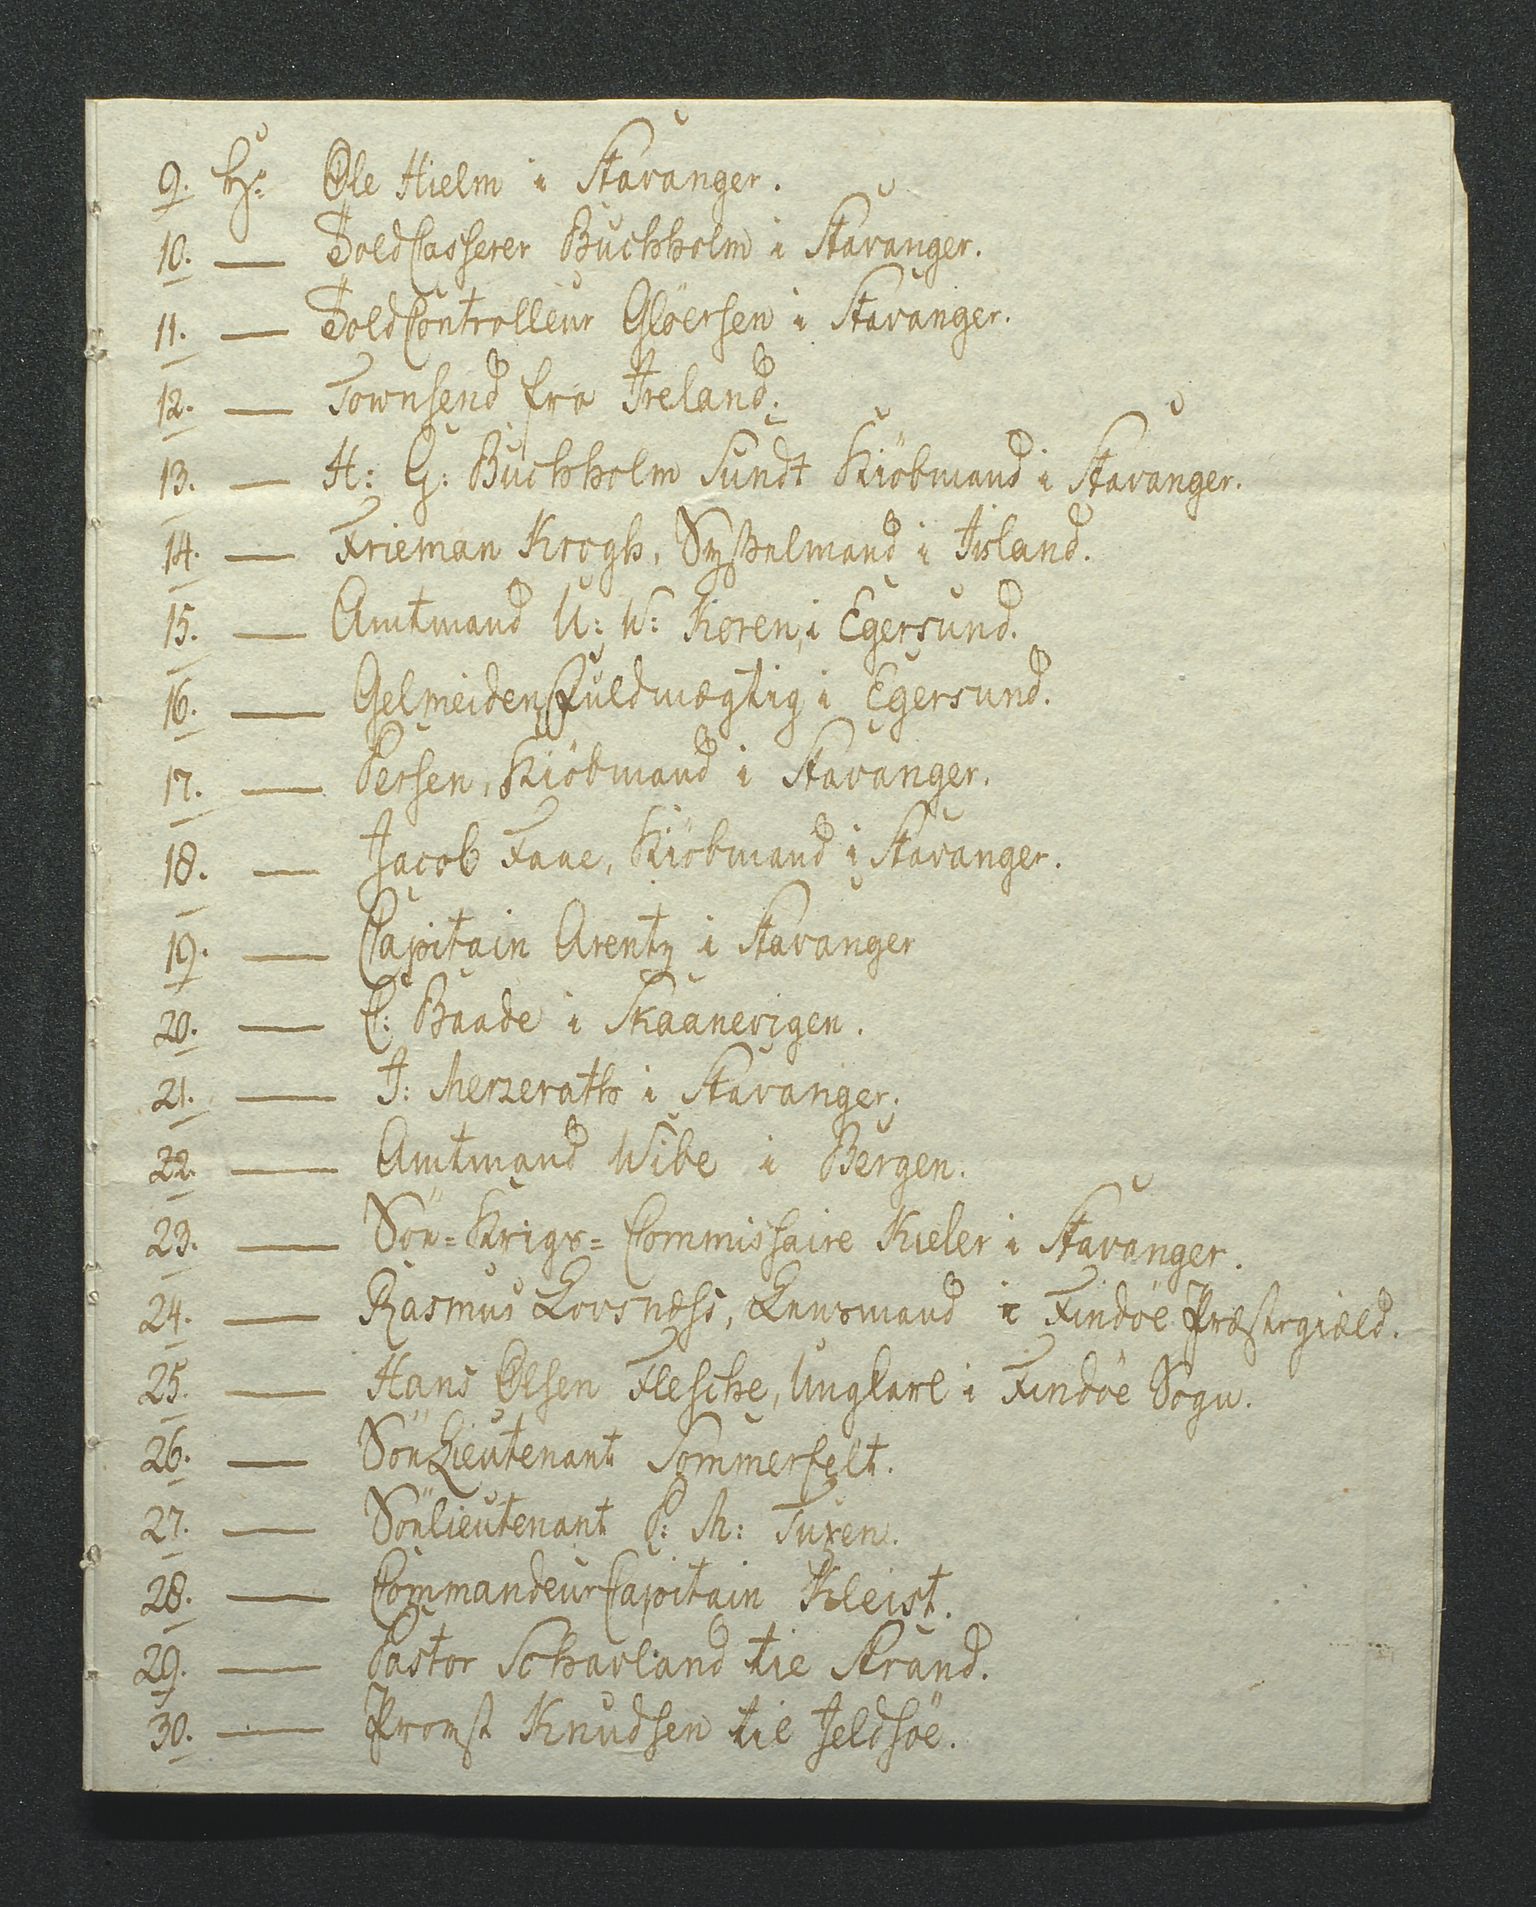 9. Hr: Ole Hielm i Stavanger.
10. — ToldCasserer Buchholm i Stavanger.
11. — ToldControlleur Glöersen i Stavanger.
12. — Townsend fra Ireland.
13. — H: G: Buchholm Sundt Kiöbmand i Stavanger.
14. — Frieman Krogh, Sysselmand i Island.
15. — Amtmand U: W: Koren, i Egersund.
16. — Gelmeiden, Fuldmægtig i Egersund.
17. — Persen, Kiöbmand i Stavanger.
18. — Jacob Faae, Kiöbmand i Stavanger.
19. — Capitain Arentz i Stavanger
20. — C: Baade i Skaanevigen.
21. — J: Merzerath i Stavanger.
22. — Amtmand Wibe i Bergen.
23. — Söe=Krigs=Commissaire Kieler i Stavanger.
24. — Rasmus Lovsness, Lensmand i Findöe Præstegiæld.
25. — Hans Olsen Flesche, Ungkarl i Findöe Sogn.
26. — SöeLieutenant Sommerfelt.
27. — Söelieutenant P: M: Tuxen.
28. — CommandeurCapitain Kleist.
29. — Pastor Schavland til Strand.
30. — Provst Knudsen til Jeldsöe.